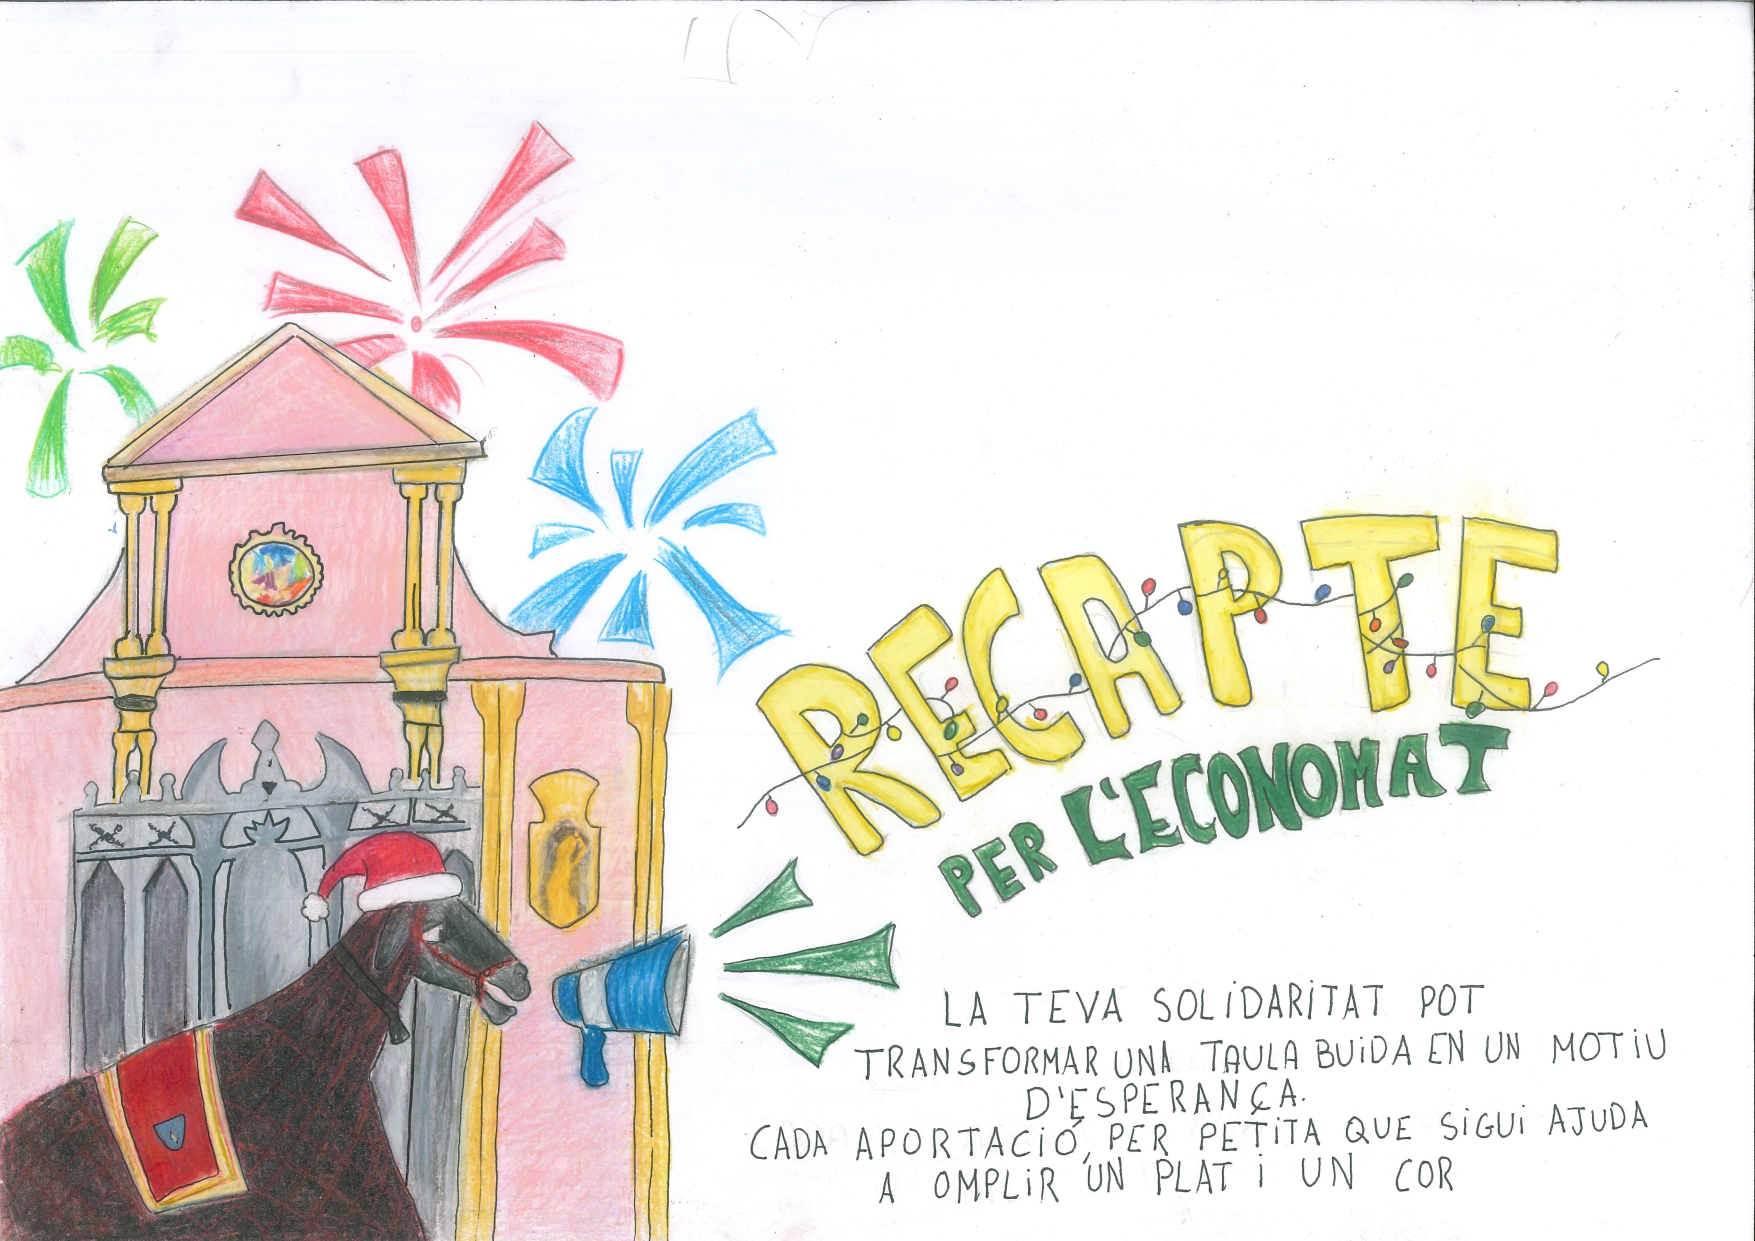 RECAPTE
PER L'ECONOMAT
LA TEVA SOLIDARITAT POT
TRANSFORMAR UNA TAULA BUIDA EN UN MOTIU
D'ESPERANÇA.
CADA APORTACIÓ, PER PETITA QUE SIGUI AJUDA
A OMPLIR UN PLAT I UN COR